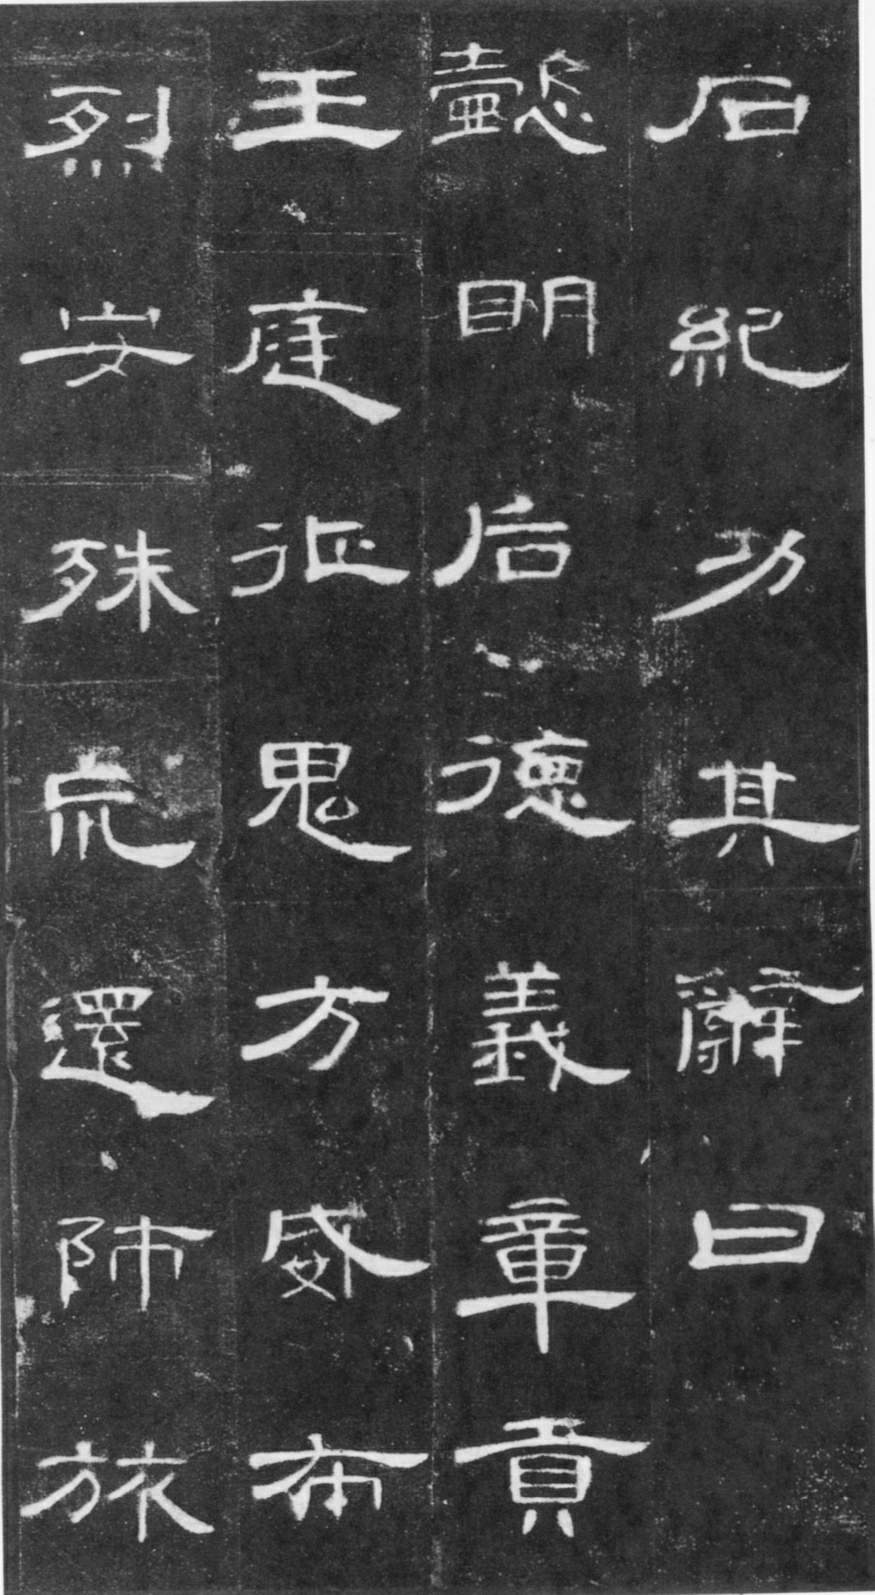 石紀功其辭曰
懿明后德義章貢
王庭征鬼方威布
烈安殊巟還師旅